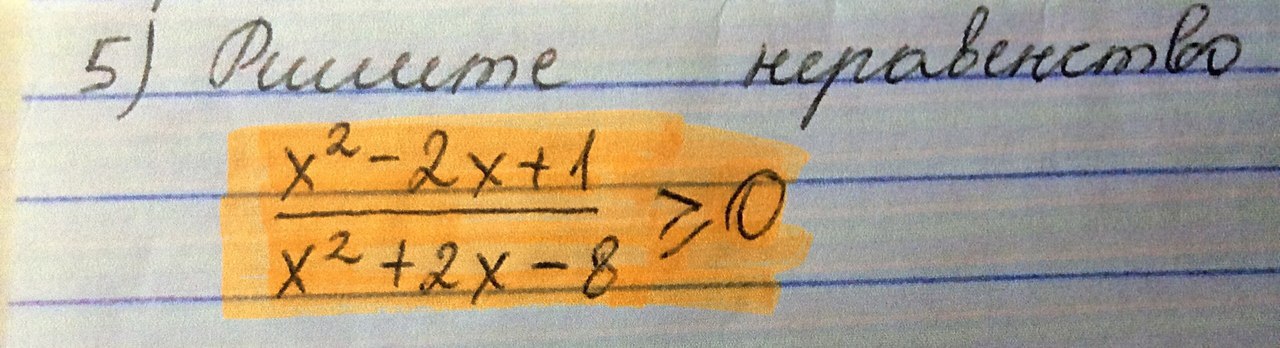 5) Решите неравенство
x² - 2x + 1
x² + 2x - 8 ⩾ 0